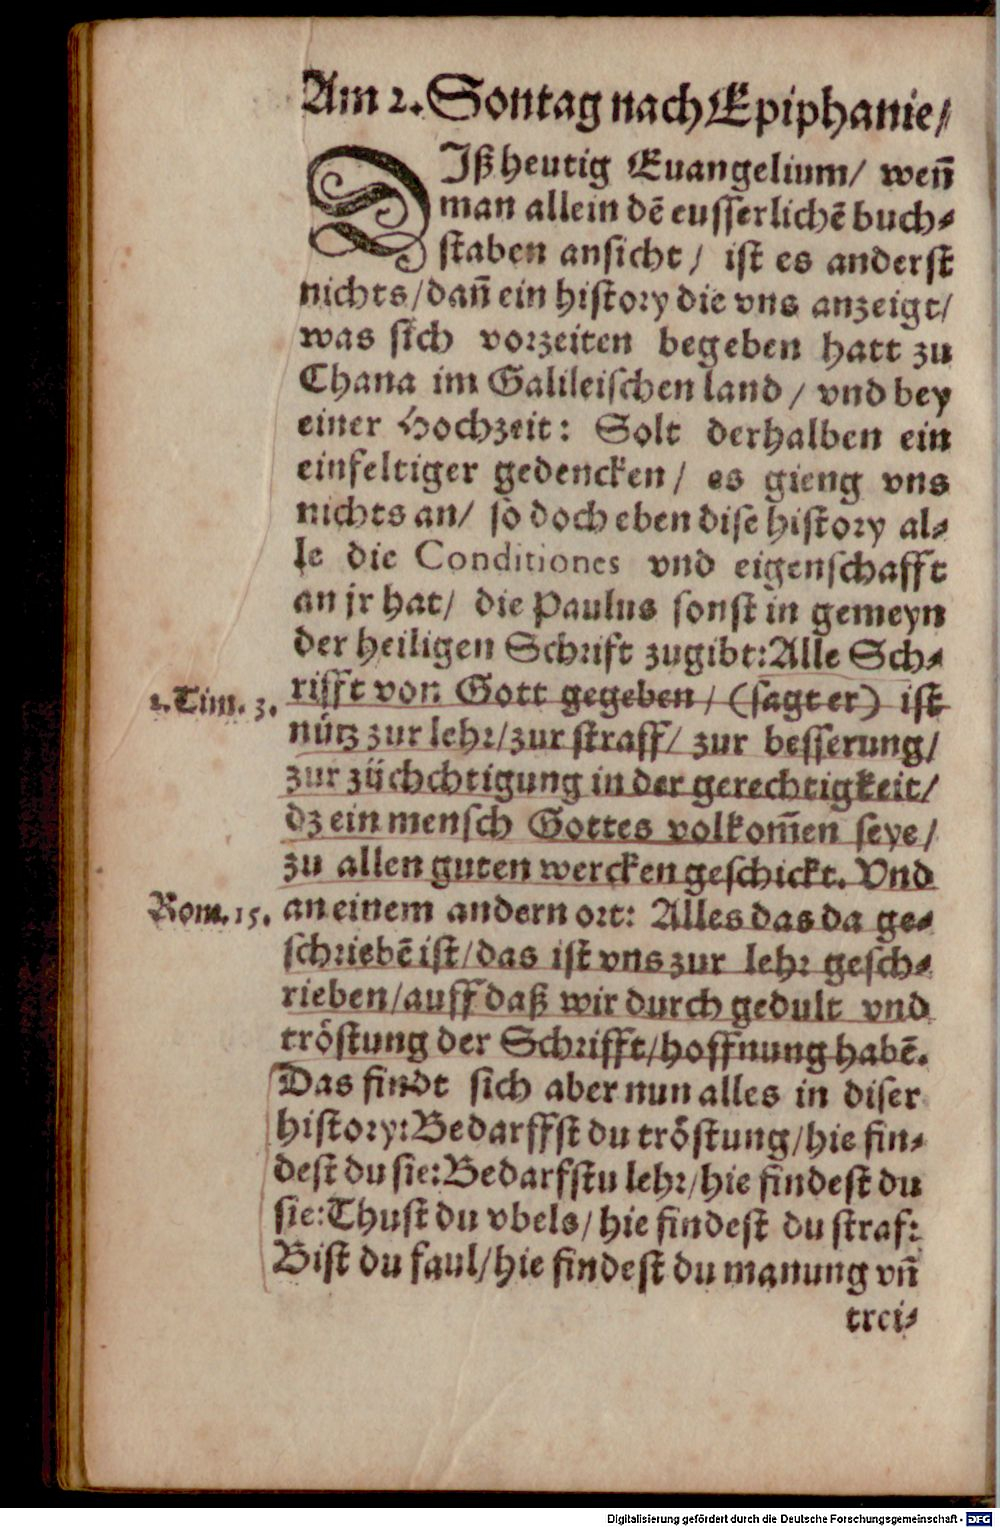 Am 2. Sontag nach Epiphanie/
DIß heutig Euangelium/ weñ
man allein dē eusserlichē buch⸗
staben ansicht/ ist es anderst
nichts/ dañ ein history die vns anzeigt/
was sich vorzeiten begeben hatt zu
Chana im Galileischen land/ vnd bey
einer Hochzeit: Solt derhalben ein
einfeltiger gedencken/ es gieng vns
nichts an/ so doch eben dise history al⸗
le die Conditiones vnd eigenschafft
an jr hat/ die Paulus sonst in gemeyn
der heiligen Schrift zugibt: Alle Sch⸗
2. Tim. 3. rifft von Gott gegeben/ (sagt er) ist
nütz zur lehr/ zur straff/ zur besserung/
zur züchchtigung in der gerechtigkeit/
dz ein mensch Gottes volkom̃en seye/
zu allen guten wercken geschickt. Vnd
Rom. 15. an einem andern ort: Alles das da ge⸗
schriebē ist/ das ist vns zur lehr gesch⸗
rieben/ auff daß wir durch gedult vnd
tröstung der Schrifft/ hoffnung habē.
Das findt sich aber nun alles in diser
history: Bedarffst du tröstung/ hie fin⸗
dest du sie: Bedarfstu lehr/ hie findest du
sie: Thust du vbels/ hie findest du straf:
Bist du faul/ hie findest du manung vñ
trei⸗
Digitalisierung gefördert durch die Deutsche Forschungsgemeinschaft - DFG